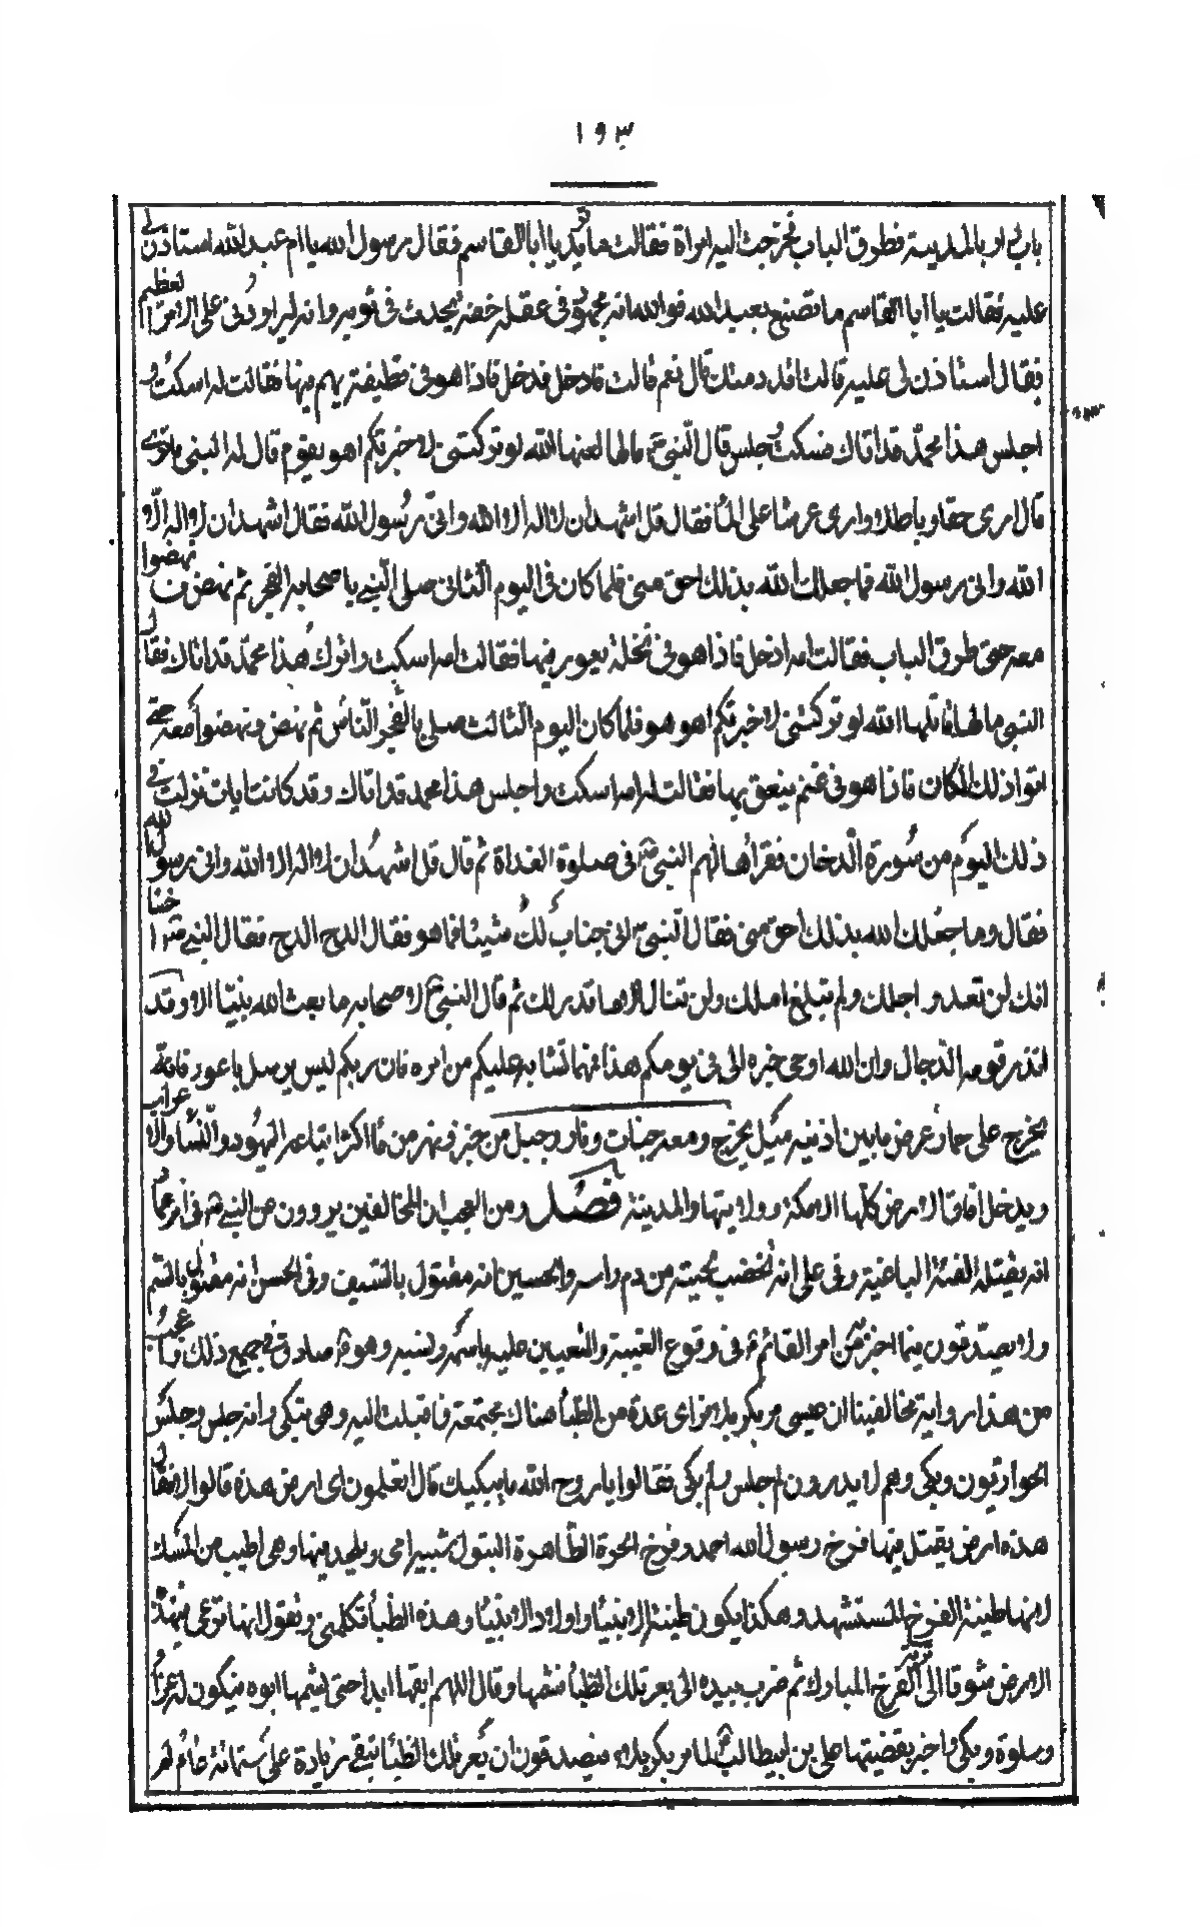 ١٩٣
باب دار بالمدينة فطرق الباب فخرجت اليه امراة فقالت ما تريد يا ابا القاسم فقال رسول الله يا ام عبد الله استاذن لى
عليه فقالت يا ابا القاسم ما تصنع بعبد الله فوالله انه لمجهود فى عقله يحدث فى ثوبه وانه ليراودنى على الامر العظيم
فقال استاذنى لى عليه قالت اعلى ذمتك قال نعم قالت فادخل فدخل فاذا هو فى قطيفة يهم فيها فقالت له اسكت و
اجلس هذا محمد قد اتاك فسكت وجلس قال النبى ما لها لعنها الله لو تركتنى لاخبرتكم اهو هو ثم قال له النبى ما ترى
قال ارى حقا وباطلا وارى عرشا على الماء فقال قل اشهد ان لا اله الا الله وانى رسول الله فقال اشهد ان لا اله الا
الله وانى رسول الله فما جعلك الله بذلك احق منى فلما كان فى اليوم الثانى صلى النبى باصحابه الفجر ثم نهض ف نهضوا
معه حتى طرق الباب فقالت امه ادخل فاذا هو فى نخلة يغرد فيها فقالت امه اسكت وانزل هذا محمد قد اتاك فقال
النبى ما لها قاتلها الله لو تركتنى لاخبرتكم اهو هو فلما كان اليوم الثالث صلى بالفجر الناس ثم نهض ونهضوا معه حتى
اتوا ذلك المكان فاذا هو فى غنم ينعق بها فقالت له امه اسكت واجلس هذا محمد قد اتاك وقد كانت ايات نزلت فى
ذلك اليوم من سورة الدخان فقرأها لهم النبى فى صلوة الغداة ثم قال قل اشهد ان لا اله الا الله وانى رسول الله
فقال وما جعلك الله بذلك احق منى فقال النبى انى خبأت لك شيئا فما هو فقال الدح الدح فقال النبى اخسا
انك لن تعدو اجلك ولم تبلغ املك ولن تنال الا ما قدر لك ثم قال النبى لاصحابه ما بعث الله نبيا الا وقد
انذر قومه الدجال وان الله اوحى خبره الى فى يومكم هذا فمهما تشابه عليكم من امره فان ربكم ليس باعور فانه
يخرج على حمار عرض ما بين اذنيه ميل يخرج ومعه جنات ونار وجبل من خبز ونهر من ماء اكثر اتباعه اليهود والنساء والاعراب
ويدخل افاق الارض كلها الا مكة و ولايتها والمدينة فصل ومن العجب ان المخالفين يروون عن النبى فى عمار
انه يقتله الفئة الباغية وفى على انه تخضب لحيته من دم راسه والحسين انه مقتول بالسيف وفى الحسن انه مقتول بالسم
ولا يصدقون فيما اخبر من امر القائم فى وقوع الغيبة والتعيين عليه باسمه ونسبه وهو صادق فى جميع ذلك واعجب
من هذا رواية مخالفينا ان عيسى مر بكربلا فراى عدة من الظبا هناك مجتمعة فاقبلت اليه وهى تبكى وانه جلس وجلس
الحواريون وبكى وهم لا يدرون لم اجلس ولم بكى فقالوا يا روح الله ما يبكيك قال اتعلمون اى ارض هذه قالوا لا فقال
هذه ارض يقتل فيها فرخ رسول الله احمد وفرخ الحرة الطاهرة البتول شبيه امى ويلحد فيها وهى اطيب من المسك
لانها طينة الفرخ المستشهد وهكذا يكون طينة الانبياء واولاد الانبياء وهذه الظبا تكلمنى وتقول انها ترعى فى هذه
الارض شوقا الى تربة الفرخ المبارك ثم ضرب بيده الى بعر تلك الظبا فشمها وقال اللهم ابقها ابدا حتى يشمها ابوه فيكون له عزاء
وسلوة وبكى واخبر بقضيتها على بن ابيطالب لما مر بكربلا فيصدقون ان بعر تلك الظبا تبقى زيادة على ستمائة عام لم